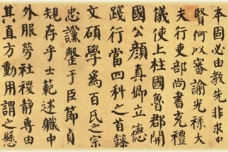 本固必由教先非求忠
賢何以審諭光祿大
夫行吏部尚書充禮
儀使上柱國魯郡開
國公顏真卿立德
踐行當四科之首懿
文碩學為百氏之宗
忠讜罄于臣節貞
規存乎士範述職中
外服勞社稷靜專由
其直方動用謂之懸